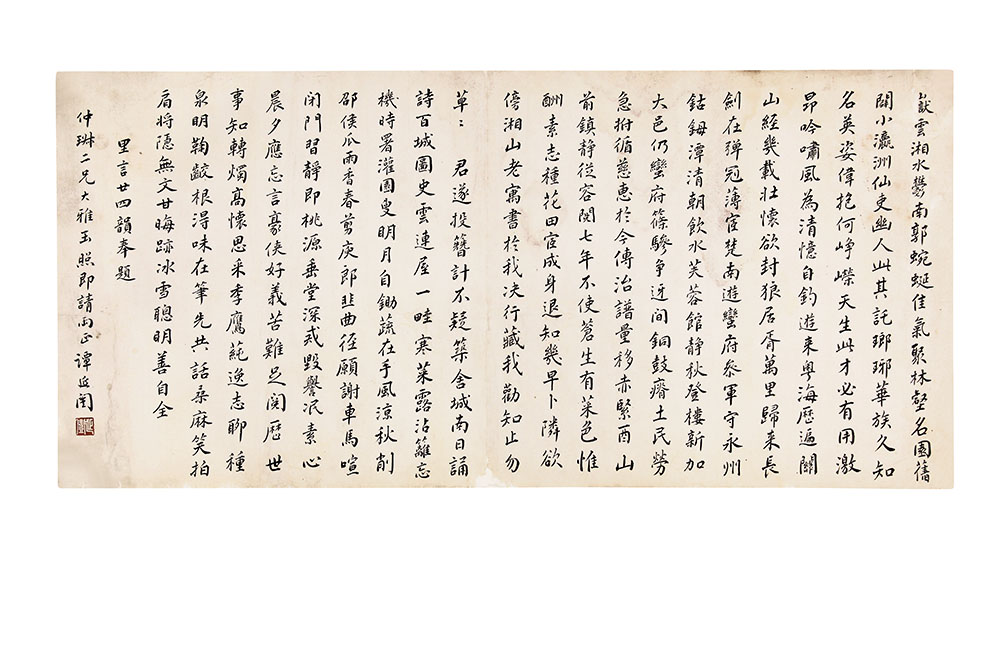 嶽雲湘水鬱南郭蜿蜒佳氣聚林壑名園舊
闢小瀛洲仙吏幽人此其託瑯琊華族久知
名英姿偉抱何崢嶸天生此才必有用激
昂吟嘯風為清憶自釣遊來粵海歷遍關
山經幾載壯懷欲封狼居胥萬里歸來長
劍在彈冠薄宦楚南遊蠻府參軍守永州
鈷鉧潭清朝飲水芙蓉館靜秋登樓新加
大邑仍蠻府篠驂爭迓間銅鼓瘠土民勞
急拊循慈惠於今傳治譜量移赤緊酉山
前鎮靜從容閱七年不使蒼生有菜色惟
酬素志種花田宦成身退知幾早卜隣欲
傍湘山老寓書於我決行藏我勸知止勿
草々 君遂投簪計不疑築舍城南日誦
詩百城圖史雲連屋一畦寒菜露沾籬忘
機時署灌園叟明月自鋤蔬在手風涼秋削
邵侯瓜雨香春剪庾郎韭曲徑願謝車馬喧
閉門習靜即桃源垂堂深戒毀譽泯素心
晨夕應忘言豪俠好義苦難足閱歷世
事知轉燭高懷思采季鷹蒓逸志聊種
泉明菊齩根得味在筆先共話桑麻笑拍
肩將隱無文甘晦跡冰雪聰明善自全
里言廿四韻奉題
仲琳二兄大雅玉照即請雨正 譚延闓